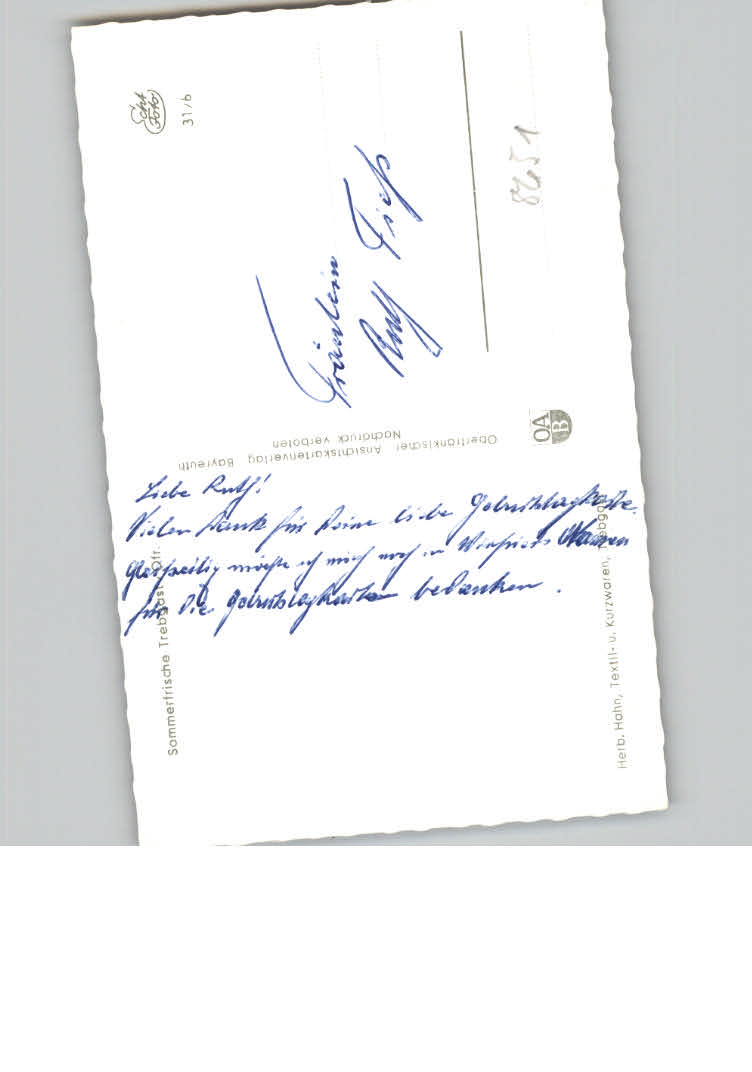 Echt
Foto
31/6
Fräulein
Ruth Fieß
8651
OA
B
Oberfränkischer Ansichtskartenverlag Bayreuth
Nachdruck verboten
Liebe Ruth!
Vielen Dank für Deine liebe Geburtstagskarte.
Gleichzeitig möchte ich mich noch in Winfrieds Namen
für die Geburtstagskarten bedanken.
Sommerfrische Trebgast Ofr.
Herb. Hahn, Textil- u. Kurzwaren, Trebgast